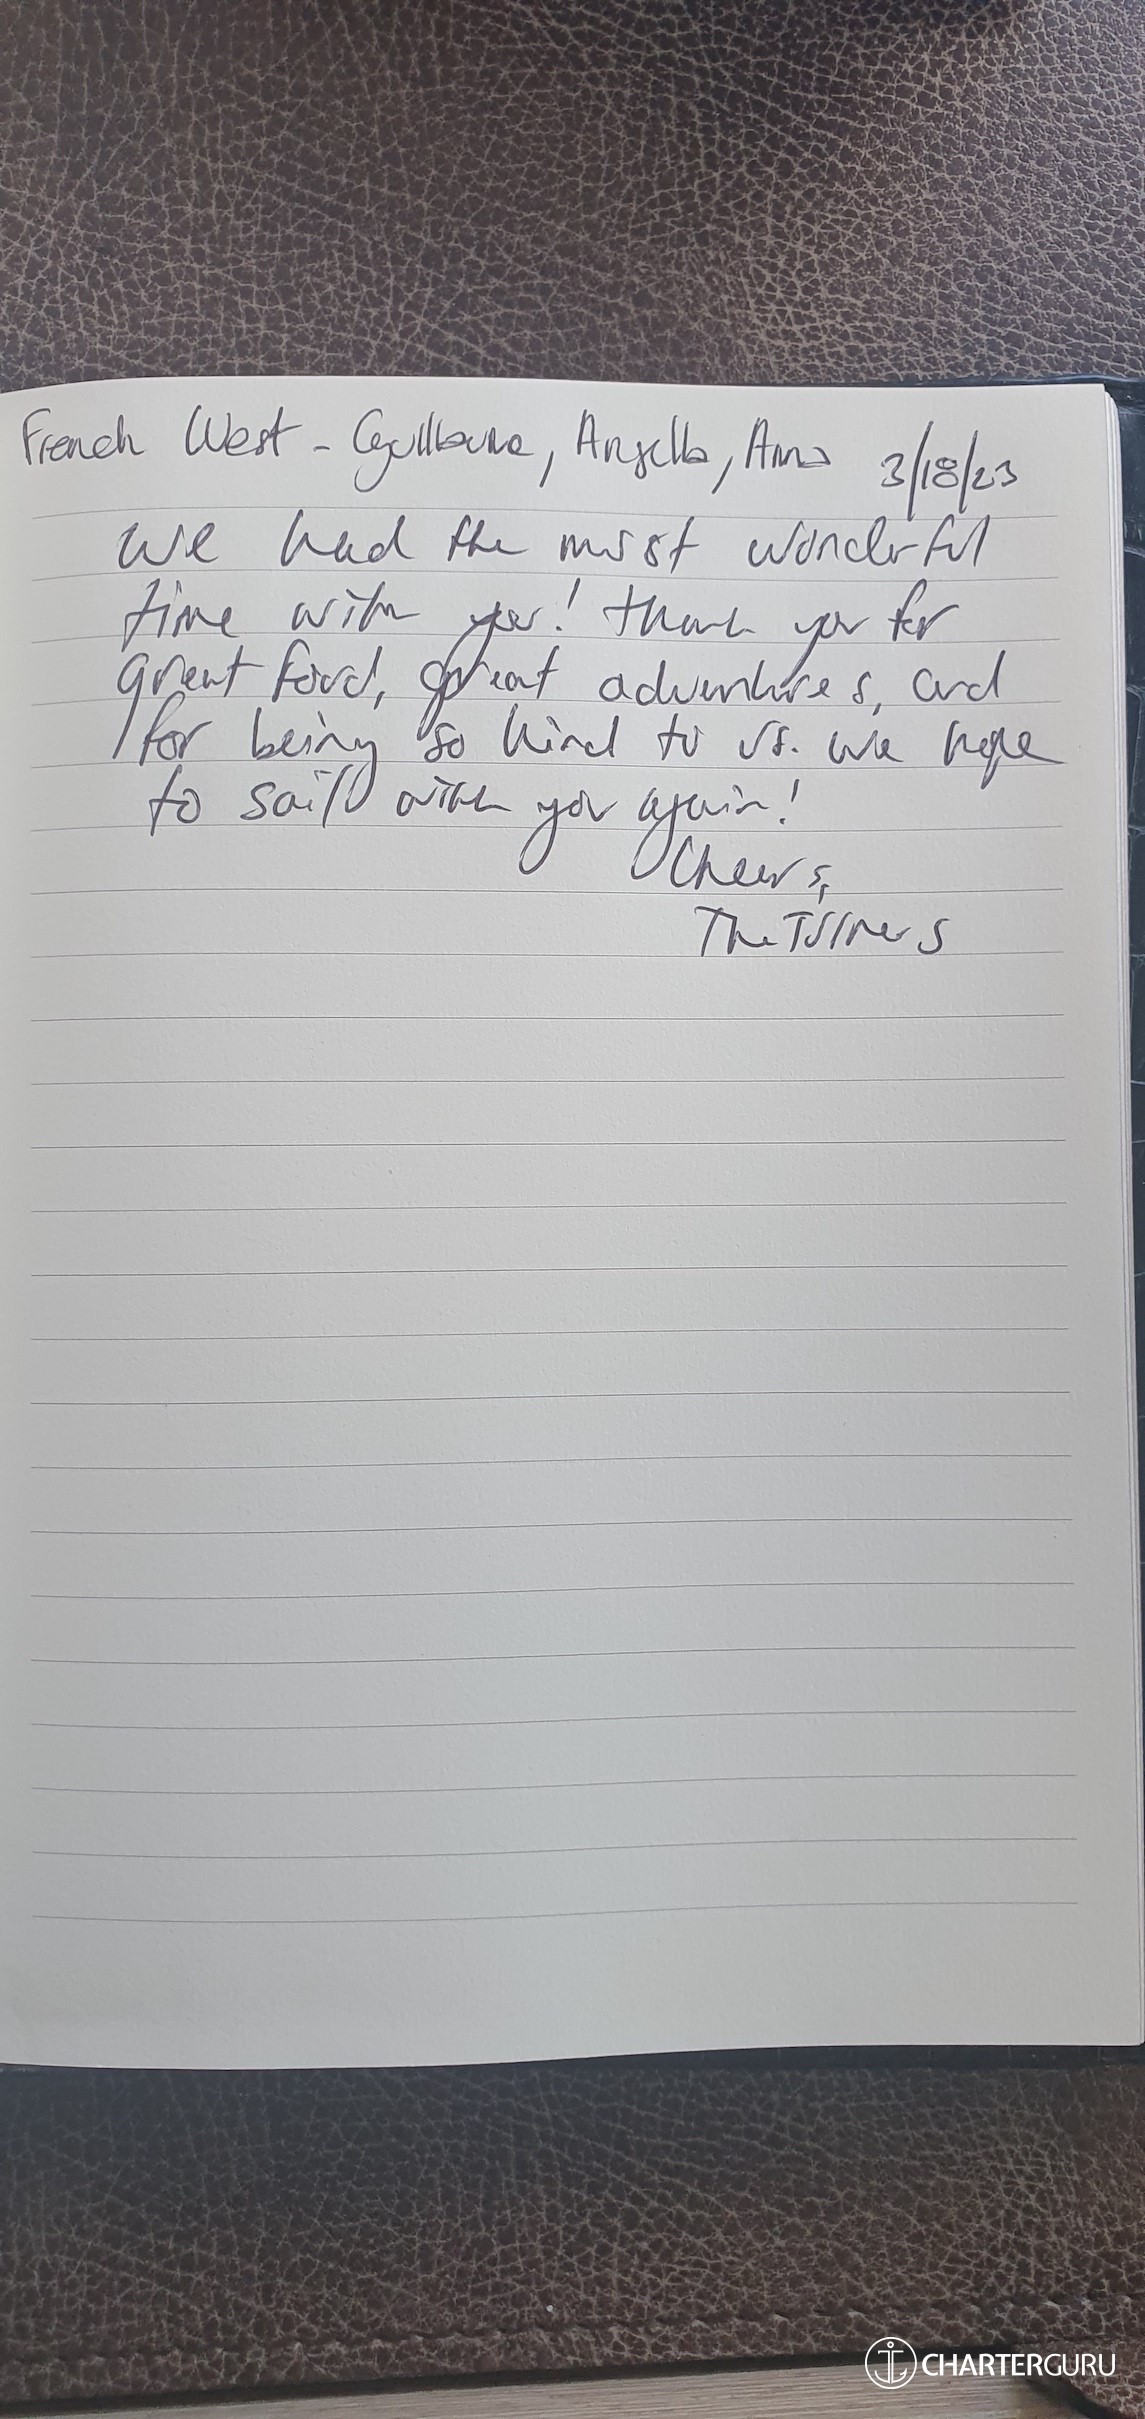 French West - Guillaume, Angella, Anna 3/18/23
we had the most wonderful
time with you! thank you for
great food, great adventures, and
for being so kind to us. we hope
to sail with you again!
Cheers,
The
CHARTERGURU